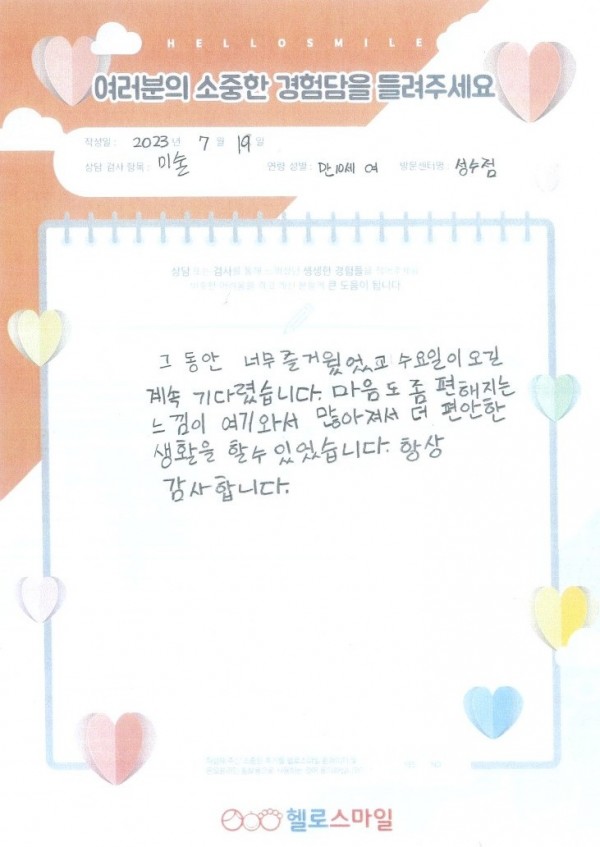 HELLOSMILE
여러분의 소중한 경험담을 들려주세요
작성일 : 2023년 7월 19일
상담 검사 항목 : 미술 연령 성별 : 만10세 여 방문센터명 : 성수점
상담 또는 검사를 통해 생생한 경험들을
큰 도움이 됩니다
그 동안 너무 즐거웠었고 수요일이 오길
계속 기다렸습니다. 마음도 좀 편해지는
느낌이 여기와서 많아져서 더 편안한
생활을 할 수 있었습니다. 항상
감사합니다.
헬로스마일